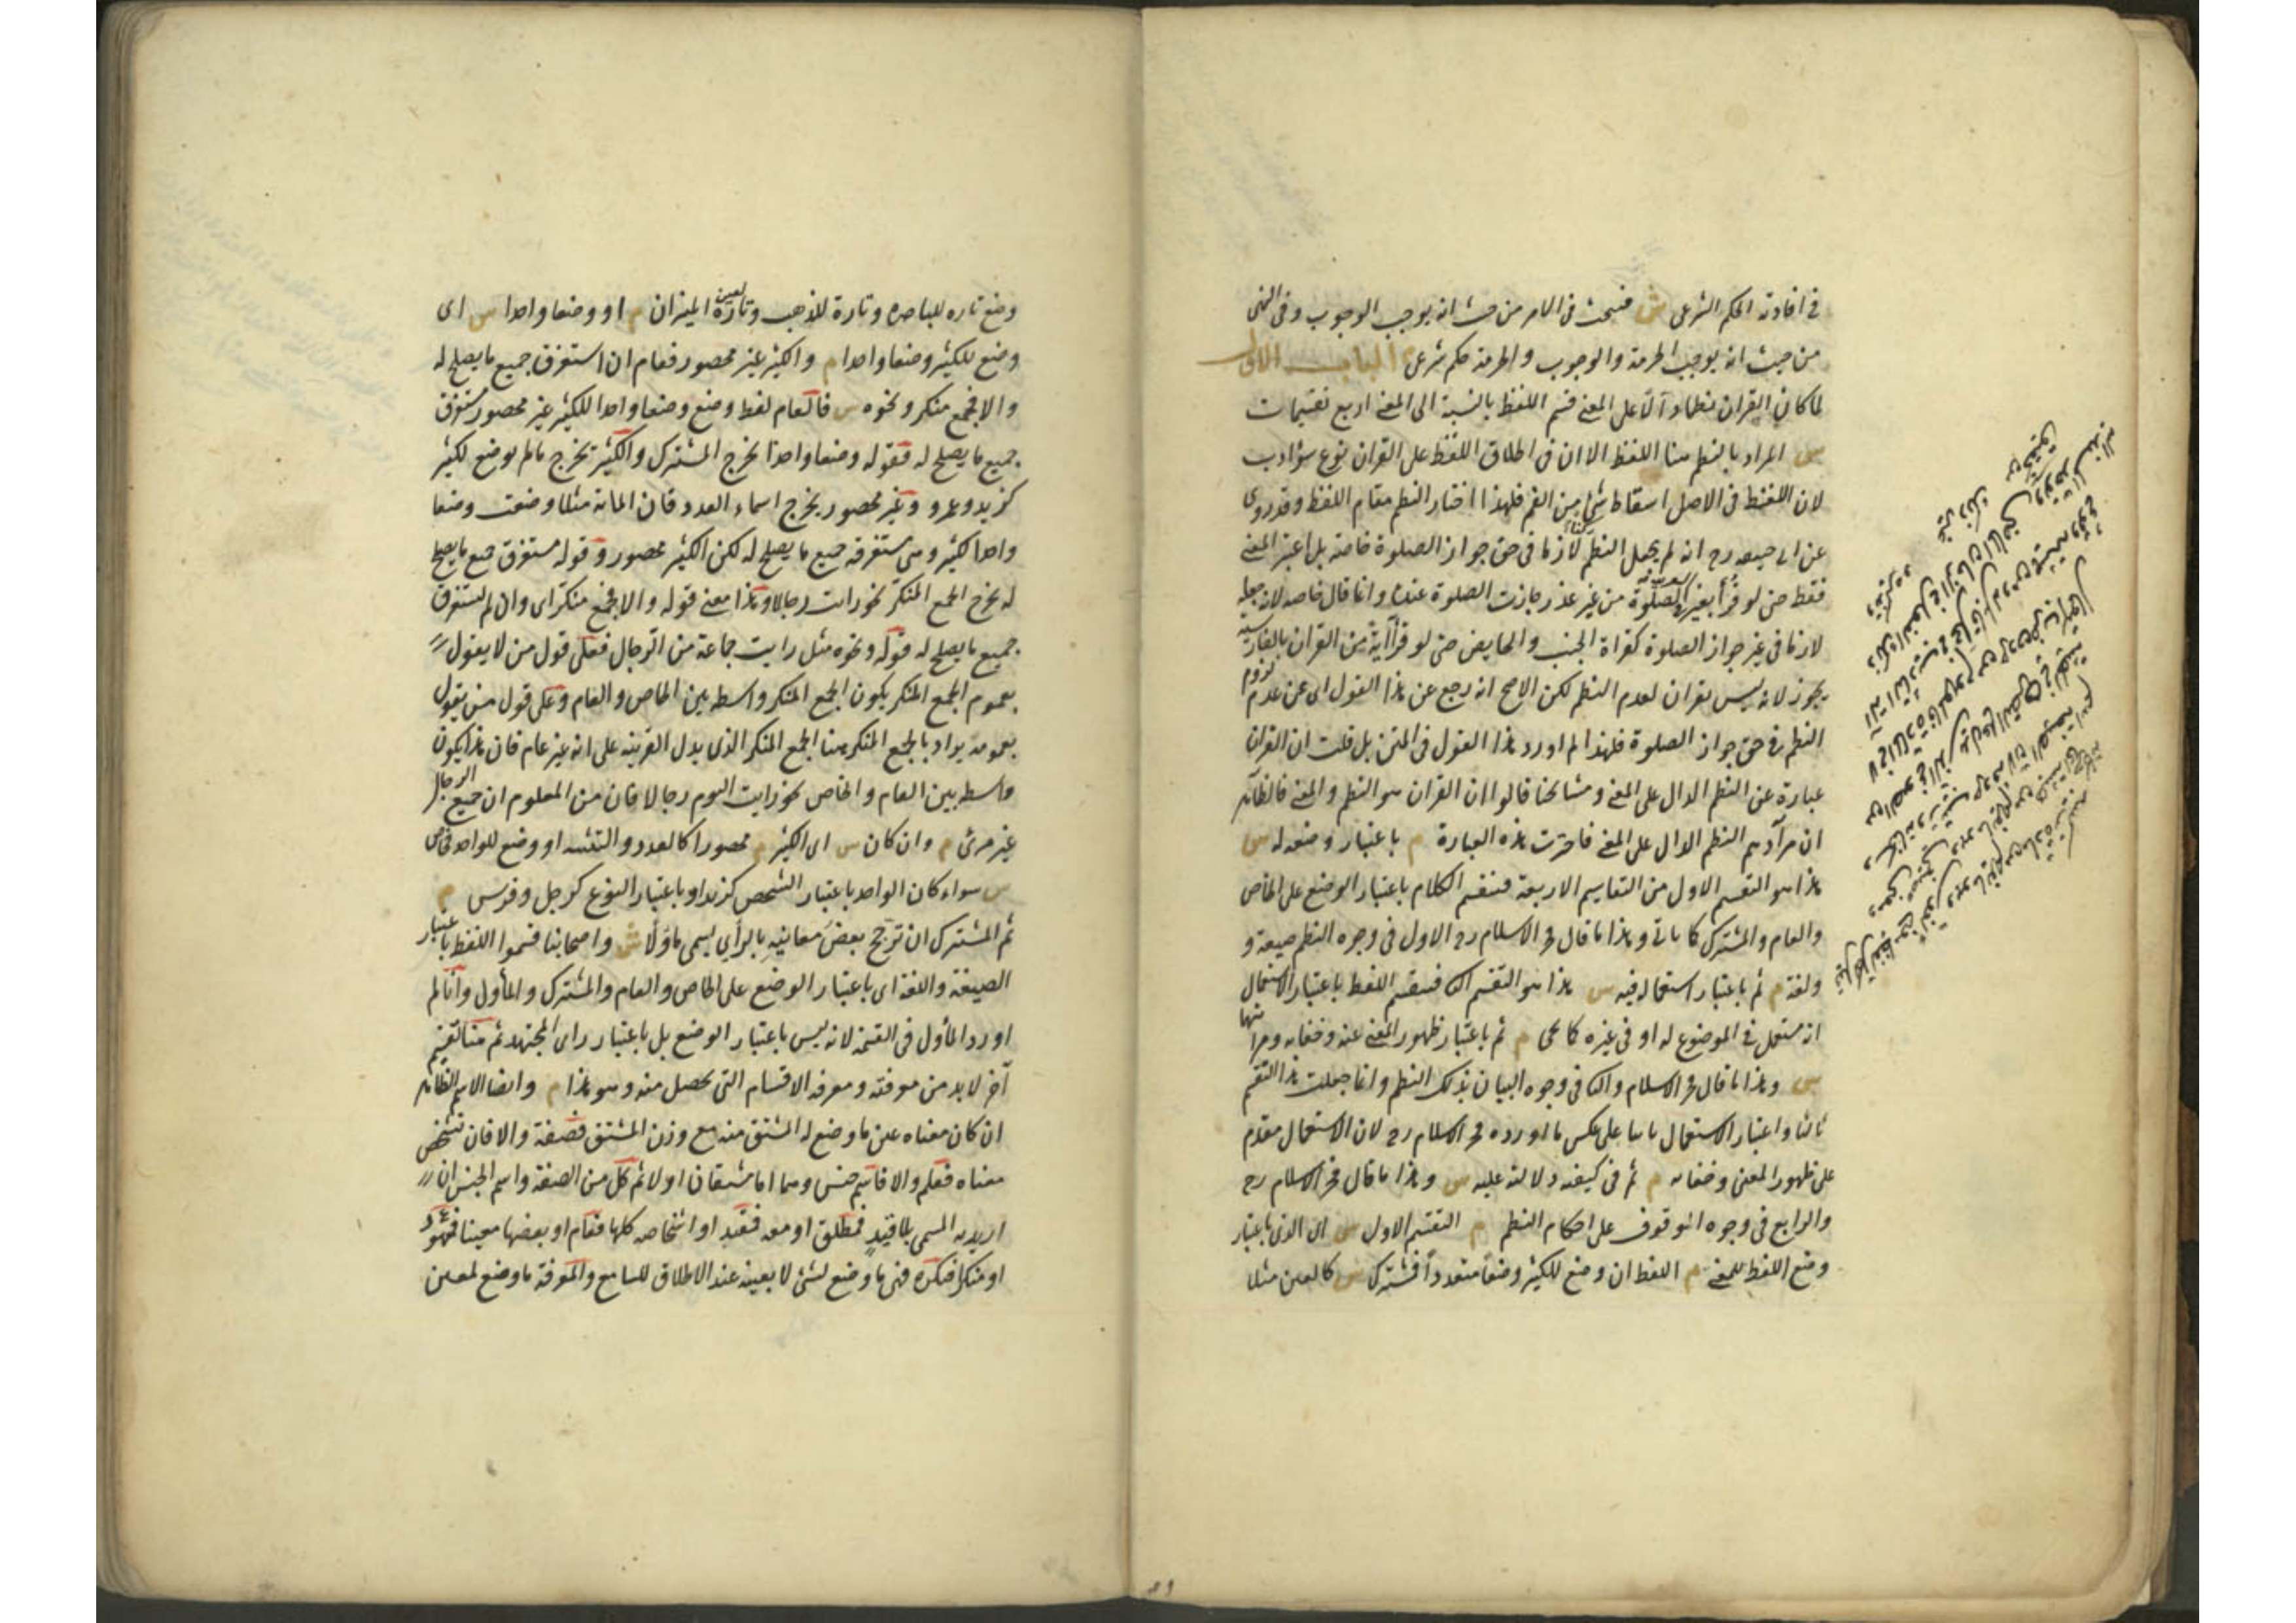 في افادته الحكم الشرعى ش فيبحث فى الامر من حيث انه يوجب الوجوب وفى النهى
من حيث انه يوجب الحرمة والوجوب والحرمة حكم شرعى الباب الاول
لما كان القران نظما دالا على المعنى قسم اللفظ بالنسبة الى المعنى اربع تقسيمات
ش المراد بالنظم هنا اللفظ الا ان فى اطلاق اللفظ على القران نوع سؤ ادب
لان اللفظ فى الاصل اسقاط شئ من الفم فلهذا اختار النظم مقام اللفظ وقد روى
عن ابى حنيفه رح انه لم يجعل النظم ركنا لازما فى حق جواز الصلوة خاصة بل اعتبر المعنى
فقط حتى لو قرأ بغير العربية فى الصلوة من غير عذر جازت الصلوة عنده وانما قال خاصه لانه جعله
لازما فى غير جواز الصلوة كقراة الجنب والحايض حتى لو قرأ آية من القران بالفارسية
يجوز لانه ليس بقران لعدم النظم لكن الاصح انه رجع عن هذا القول اى عن عدم لزوم
النظم فى حق جواز الصلوة فلهذا لم اورد هذا القول فى المتن بل قلت ان القران
عبارة عن النظم الدال على المعنى ومشايخنا قالوا ان القران هو النظم والمعنى فالظاهر
ان مرادهم النظم الدال على المعنى فاخترت هذه العبارة م باعتبار وضعه له ش
هذا هو التقسيم الاول من التقاسيم الاربعة فينقسم الكلام باعتبار الوضع على الخاص
والعام والمشترك كما ياتى وهذا ما قال فخر الاسلام رح الاول فى وجوه النظم صيغة و
ولغة م ثم باعتبار استعماله فيه ش هذا هو التقسيم الثا فينقسم اللفظ باعتبار الاستعمال
انه مستعمل فى الموضوع له او فى غيره كما يجى م ثم باعتبار ظهور المعنى عنه وخفايه ومراتبها
ش وهذا ما قال فخر الاسلام والثا فى وجوه البيان بذلك النظم وانما جعلت هذا التقسيم
ثالثا واعتبار الاستعمال ثانيا على عكس ما اورده فخر الاسلام رح لان الاستعمال مقدم
على ظهور المعنى وخفائه م ثم فى كيفية دلالته عليه ش وهذا ما قال فخر الاسلام رح
والرابع فى وجوه الوقوف على احكام النظم م التقسيم الاول ش اى الذى باعتبار
وضع اللفظ للمعنى م اللفظ ان وضع للكثير وضعا متعددا فمشترك ش كالعين مثلا
وضع تاره للباصره وتارة للذهب وتارة لعين الميزان م او وضعا واحدا ش اى
وضع للكثير وضعا واحدا م والكثير غير محصور فعام ان استغرق جميع ما يصلح له
والا فجمع منكر ونحوه ش فالعام لفظ وضع وضعا واحدا للكثير غير محصور مستغرق
جميع ما يصلح له فقوله وضعا واحدا يخرج المشترك والكثير يخرج ما لم يوضع لكثير
كزيد وعمرو وغير محصور يخرج اسماء العدد فان المائة مثلا وضعت وضعا
واحدا لكثير وهى مستغرقه جميع ما يصلح له لكن الكثير محصور وقوله مستغرق جميع ما يصلح
له يخرج الجمع المنكر نحو رايت رجالا وهذا معنى قوله والا فجمع منكر اى وان لم يستغرق
جميع ما يصلح له قوله ونحوه مثل رايت جماعة من الرجال فعلى قول من لا يقول
بعموم الجمع المنكر يكون الجمع المنكر واسطه بين الخاص والعام وعلى قول من يقول
بعمومه يراد بالجمع المنكر هنا الجمع المنكر الذى يدل القرينه على انه غير عام فان هذا يكون
واسطه بين العام والخاص نحو رايت اليوم رجالا فان من المعلوم ان جميع الرجال
غير مرئى م وان كان ش اى الكثير م محصورا كالعدد والتثنيه او وضع للواحد فخاص
ش سواء كان الواحد باعتبار الشخص كزيد او باعتبار النوع كرجل وفرس م
ثم المشترك ان ترجح بعض معانيه بالرأى يسمى مأولا ش واصحابنا قسموا اللفظ باعتبار
الصيغة واللغة اى باعتبار الوضع على الخاص والعام والمشترك والمأول وانما لم
اورد المأول فى القسمة لانه ليس باعتبار الوضع بل باعتبار راى المجتهد ثم هنا تقسيم
آخر لا بد من معرفته ومعرفه الاقسام التى تحصل منه وهو هذا م وايضا الاسم الظاهر
ان كان معناه عين ما وضع له المشتق منه مع وزن المشتق فصفة والا فان تشخص
معناه فعلم والا فاسم جنس وهما اما مشتقان او لا ثم كل من الصفة واسم الجنس ان
اريد به المسمى بلا قيد فمطلق او معه فمقيد او اشخاصه كلها فعام او بعضها معينا فمعهود
او منكرا فنكرة فهى ما وضع لشئ لا بعينه عند الاطلاق للسامع والمعرفة ما وضع لمعين